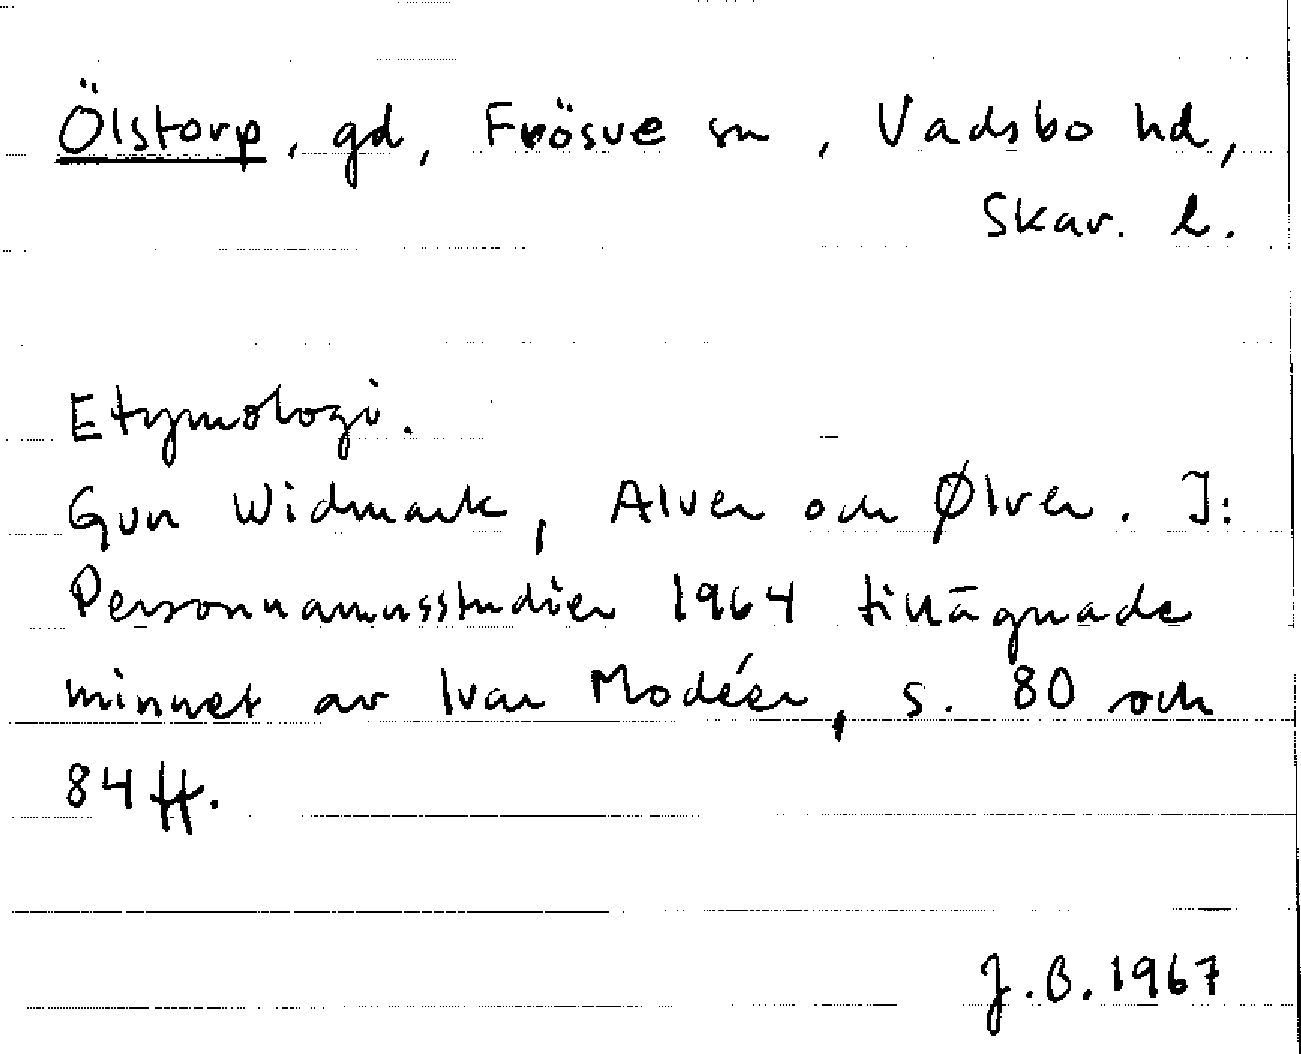 Ölstorp, gd, Frösve sn, Vadsbo hd,
Skar. l.
Etymologi.
Gun Widmark, Alver och Ølver. I:
Personnamnsstudier 1964 tillägnade
minnet av Ivar Modéer, s. 80 och
84 ff.
J.B. 1967